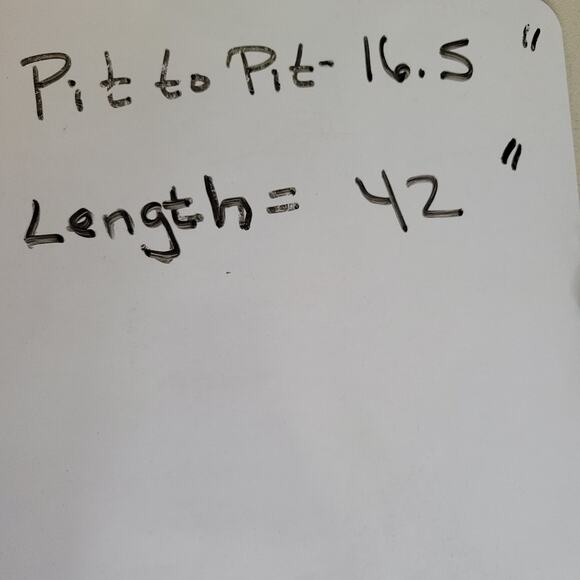 Pit to Pit- 16.5 "
Length = 42 "